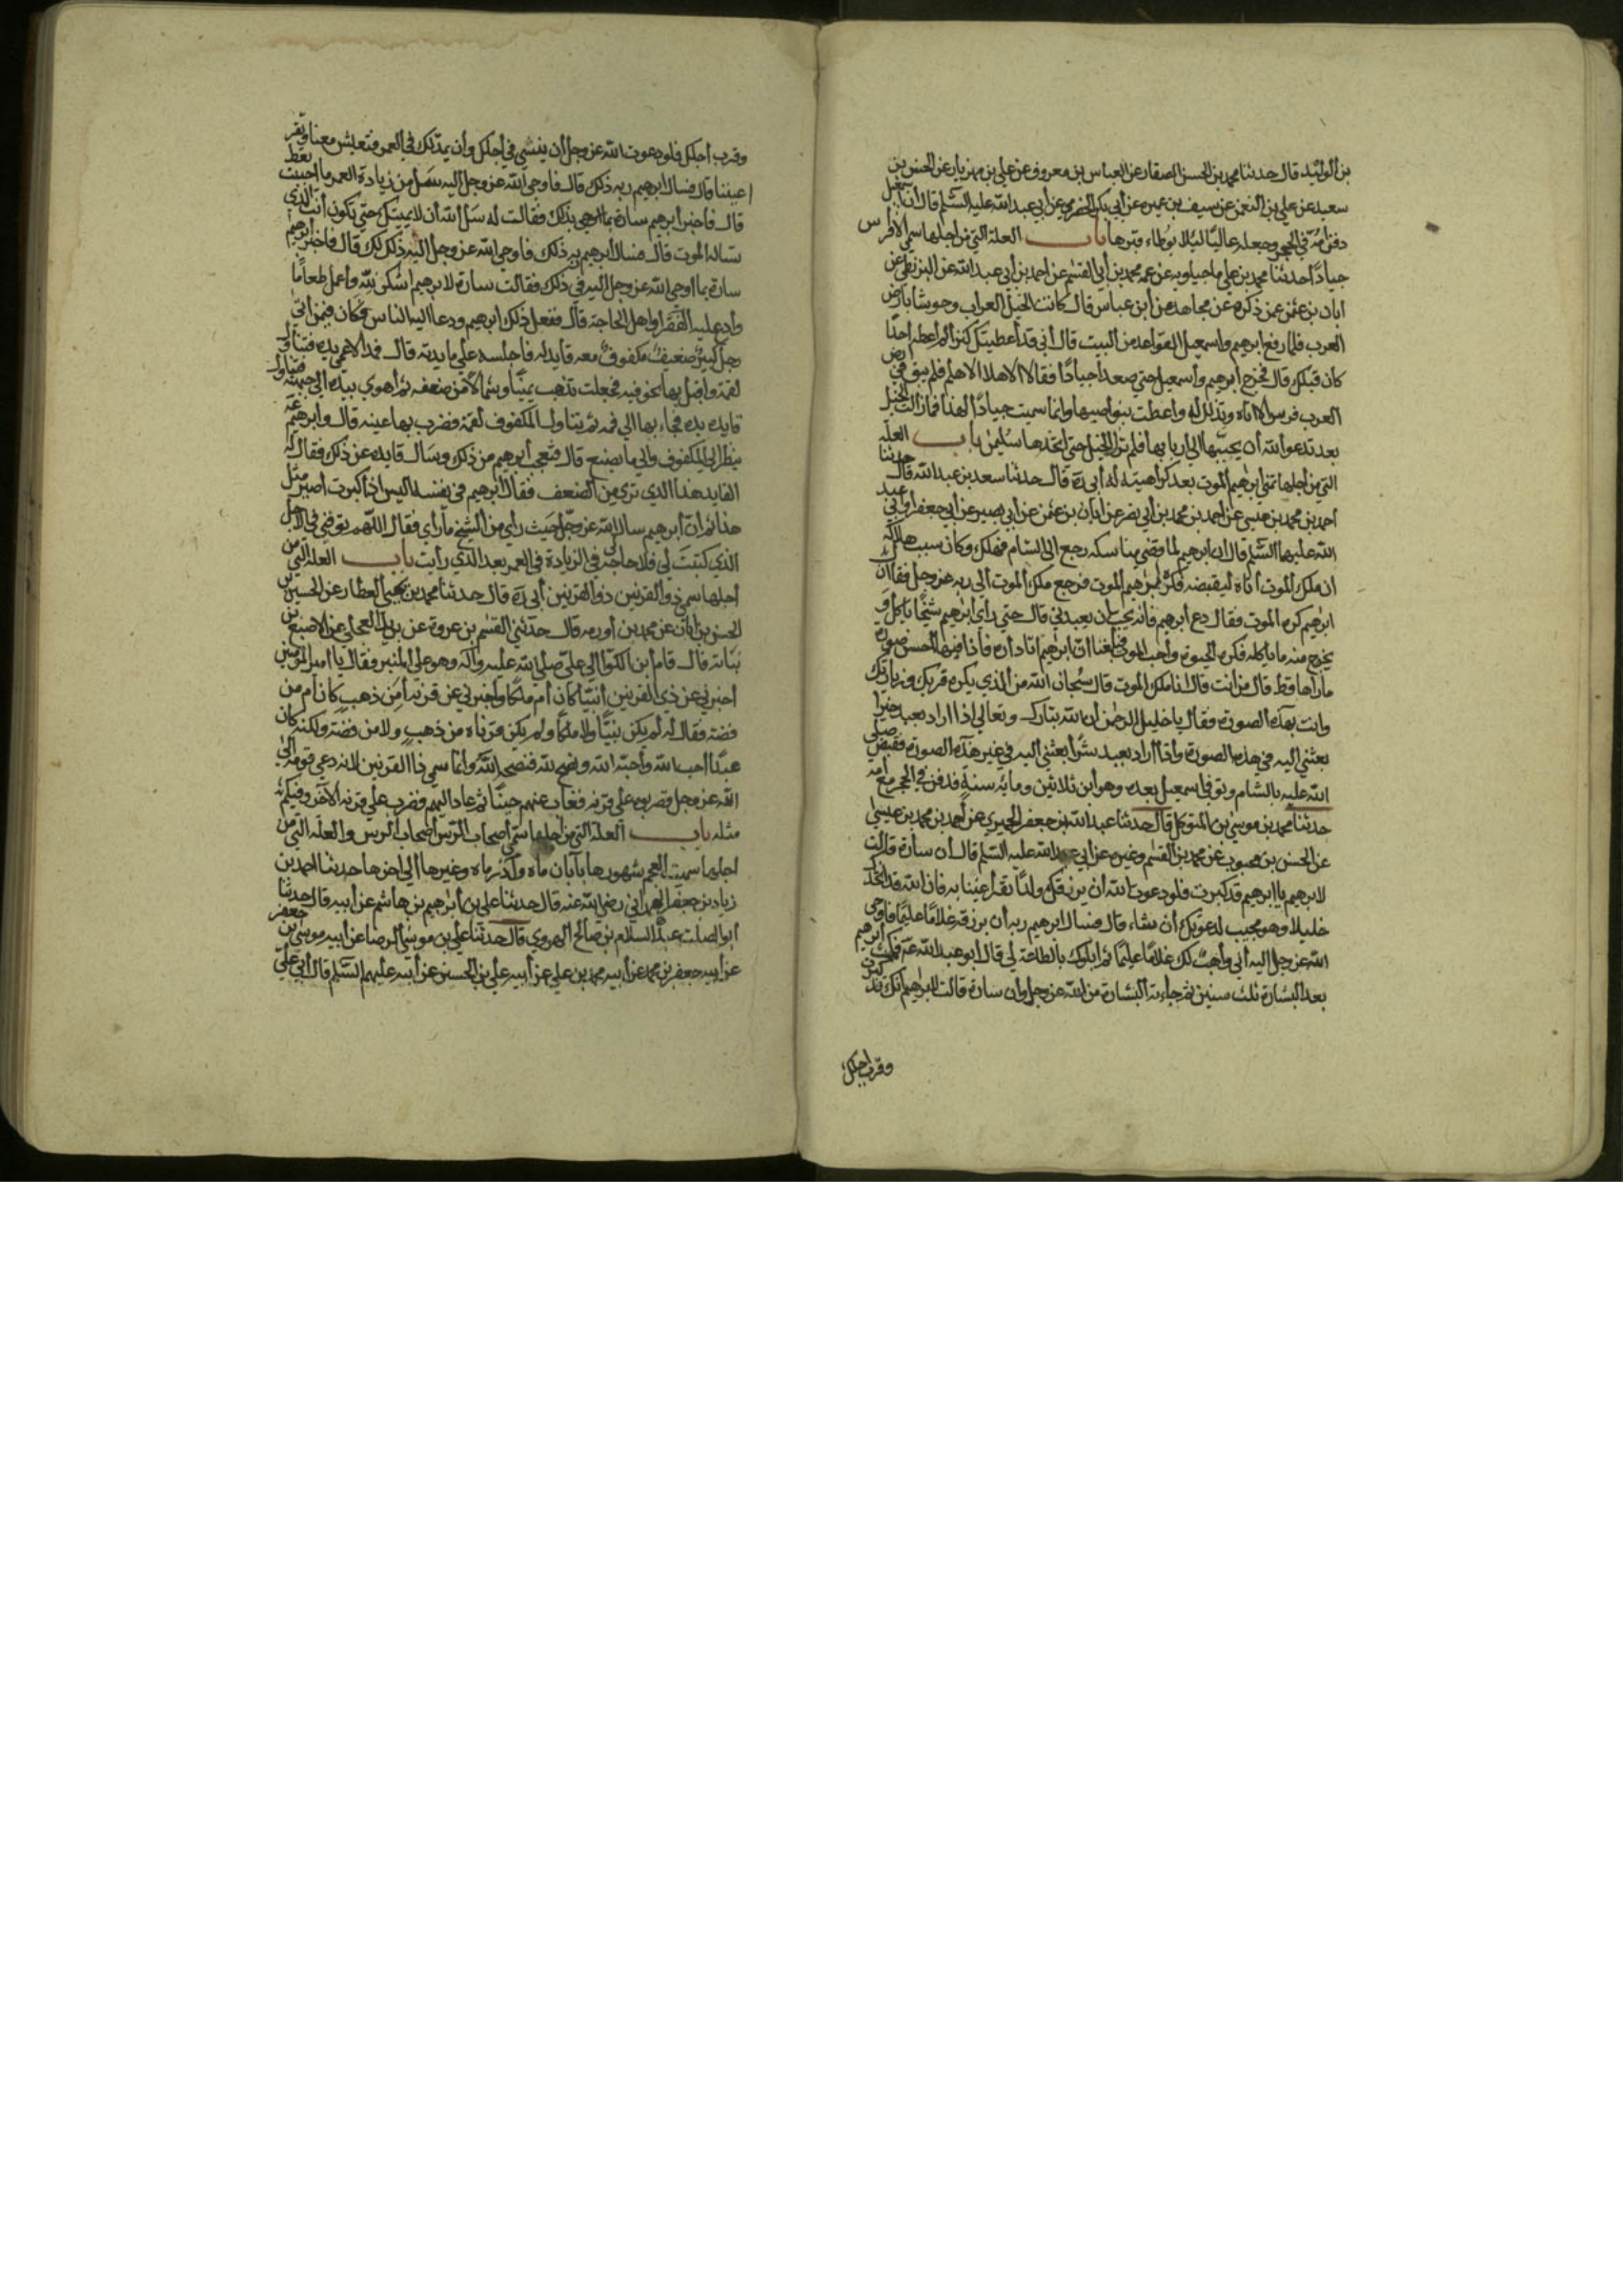 بن الوليد قال حدثنا محمد بن الحسن الصفار عن العباس بن معروف عن علي بن مهزيار عن الحسن بن
سعيد عن علي بن النعمن عن سيف بن عميرة عن أبي بكر الحضرمي عن أبي عبد الله عليه السلم قال أن إسمعيل
دفن أمه في الحجر وجعله عاليًا لئلا يوطاء قبرها باب العلة التي من أجلها سمي الأفرس
جيادًا حدثنا محمد بن علي ماجيلويه عن عمه محمد بن أبي القسم عن احمد بن أبي عبد الله عن البزنطي عن
أبان بن عثمن عمن ذكره عن مجاهد عن ابن عباس قال كانت الخيل العراب وحوشا بأرض
العرب فلما رفع ابرهيم واسمعيل القواعد من البيت قال أني قد أعطيتك كنزا لم أعطه احدًا
كان قبلك قال فخرج ابرهيم وأسمعيل حتي صعدا جيادًا فقالا الا هلا الا هلم فلم يبق في أرض
العرب فرس الا اتاه وتذلل له واعطت بنواصيها وانما سميت جيادًا لهذا فما زالت الخيل
بعد تدعو الله أن يحببها الي اربابها فلم تزل الخيل حتي اتخذها سليمن باب العلة
التي من أجلها تمني ابرهيم الموت بعد كراهيته له أبي ره قال حدثنا سعد بن عبد الله قال حدثنا
احمد بن محمد بن عيسي عن احمد بن محمد بن أبي نصر عن أبان بن عثمن عن أبي بصير عن أبي جعفر أو أبي عبد
الله عليهما السلم قال ان ابرهيم لما قضي مناسكه رجع الى الشام فهلك وكان سبب هلاكه
ان ملك الموت أتاه ليقبضه فكره ابرهيم الموت فرجع ملك الموت الي ربه عز وجل فقال ان
ابرهيم كره الموت فقال دع أبرهيم فانه يحب أن يعبدني قال حتي رأي ابرهيم شيخًا يأكل و
يخرج منه ما يأكله فكره الحيوة وأحب الموت فبلغنا ان ابرهيم اتا داره فاذا فيها أحسن صورة
ما رآها قط قال من أنت قال انا ملك الموت قال سبحان الله من الذي يكره قربك وزيارتك
وانت بهذه الصورة فقال يا خليل الرحمن ان الله تبارك وتعالي اذا اراد بعبد خيرا
بعثني اليه في هذه الصورة واذا اراد بعبد شرًا بعثني اليه في غير هذه الصورة فقبض صلي
الله عليه بالشام وتوفي اسمعيل بعده وهو ابن ثلاثين ومايه سنة فدفن في الحجر مع أمه
حدثنا محمد بن موسي بن المتوكل قال حدثنا عبد الله بن جعفر الحميري عن أحمد بن محمد بن عيسي
عن الحسن بن محبوب عن محمد بن القسم وغيره عن أبي عبد الله عليه السلم قال أن سارة قالت
لابرهيم يا ابرهيم قد كبرت فلو دعوت الله أن يرزقك ولدًا تقر أعيننا به فان الله قد اتخذك
خليلا وهو مجيب لدعوتك أن شاء قال فسال ابرهيم ربه أن يرزقه غلامًا عليمًا فاوحي
الله عز وجل اليه أني واهب لك غلامًا عليمًا ثم ابلوك بالطاعة لي قال أبو عبد الله عم فمكث ابرهيم
بعد البشارة ثلث سنين ثم جاءته البشارة من الله عز وجل وان سارة قالت لابرهيم انك قد كبرت
وقرب اجلك
وقرب أجلك فلو دعوت الله عز وجل أن ينشي في أجلك وأن يمد لك في العمر فتعيش معنا وتقر
اعيننا قال فسال ابرهيم ربه ذلك قال فاوحي الله عز وجل اليه سل من زيادة العمر ما احببت تعط
قال فاخبر أبرهيم سارة بما اوحي بذلك فقالت له سل الله أن لا يميتك حتي تكون أنت الذي
تساله الموت قال فسال أبرهيم ربه ذلك فاوحي الله عز وجل اليه ذلك لك قال فاخبر ابرهيم
سارة بما اوحي الله عز وجل اليه في ذلك فقالت سارة لابرهيم اشكر لله وأعمل طعامًا
وادع عليه الفقرا واهل الحاجة قال ففعل ذلك ابرهيم ودعا اليه الناس فكان فيمن اتي
رجل كبير ضعيف مكفوف معه قايد له فاجلسه علي مايدته قال فمد الاعمي يده فتناول
لقمة واقبل بها نحو فيه فجعلت تذهب يمينًا وشمالاً من ضعفه ثم أهوي بيده الي جبهته فتناول
قايده يده فجاء بها الي فمه ثم تناول المكفوف لقمة فضرب بها عينه قال وابرهيم عم
ينظر الي المكفوف والي ما يصنع قال فتعجب أبرهيم من ذلك وسال قايده عن ذلك فقال له
القايد هذا الذي تري من الضعف فقال أبرهيم في نفسه اليس اذا كبرت أصير مثل
هذا ثم أن أبرهيم سال الله عز وجل حيث رأي من الشيخ ما رأي فقال اللهم توفني في الأجل
الذي كتبت لي فلا حاجة لي في الزيادة في العمر بعد الذي رأيت باب العلة التي من
أجلها سمي ذو القرنين ذو القرنين أبي ره قال حدثنا محمد بن يحيي العطار عن الحسين بن
الحسن بن أبان عن محمد بن أورمه قال حدثني القسم بن عروة عن بريد العجلي عن الاصبغ بن
نباتة قال قام أبن الكوا الي علي صلي الله عليه وآله وهو علي المنبر فقال يا أمير المؤمنين
أخبرني عن ذي القرنين أنبيًا كان أم ملكًا وأخبرني عن قرنه أمن ذهب كان أم من
فضة فقال له لم يكن نبيًّا ولا ملكًا ولم يكن قرناه من ذهب ولا من فضة ولكنه كان
عبدًا احب الله وأحبه الله ونصح لله فنصحه الله وانما سمي ذا القرنين لانه دعي قومه الي
الله عز وجل فضربوه علي قرنه فغاب عنهم حينًا ثم عاد اليهم فضرب علي قرنه الآخر وفيكم
مثله باب العلة التي من أجلها سمي أصحاب الرس أصحاب الرس والعلة التي من
اجلها سميت العجم شهورها بآبان ماه وآذر ماه وغيرها الي اخرها حدثنا احمد بن
زياد بن جعفر الهمداني رضي الله عنه قال حدثنا علي بن أبرهيم بن هاشم عن أبيه قال حدثنا
أبو الصلت عبد السلام بن صالح الهروي قال حدثنا علي بن موسي الرضا عن أبيه موسي بن جعفر
عن أبيه جعفر بن محمد عن أبيه محمد بن علي عن أبيه علي بن الحسين عن أبيه عليهم السلم قال أتي علي